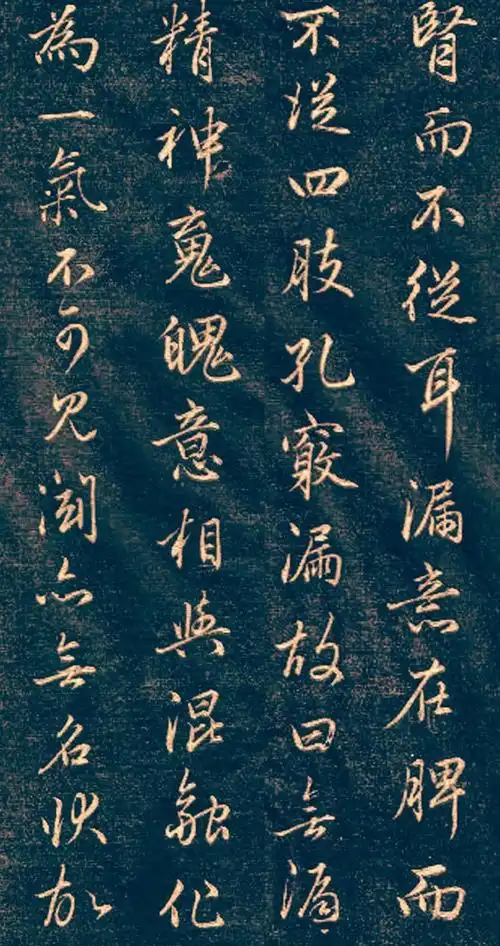 腎而不從耳漏意在脾而
不從四肢孔竅漏故曰無漏
精神魂魄意相與混融化
為一氣不可見聞亦無名狀故